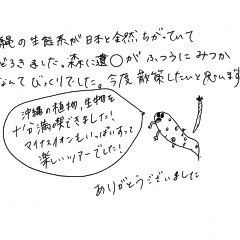 縄の生態系が日本と全然ちがっていて
どろきました。森に遺〇がふつうにみつか
なんてびっくりでした。今度散策したいと思います
沖縄の植物、生物を
十分満喫できました!
マイナスイオンもいっぱいすって
楽しいツアーでした!
ありがとうございました